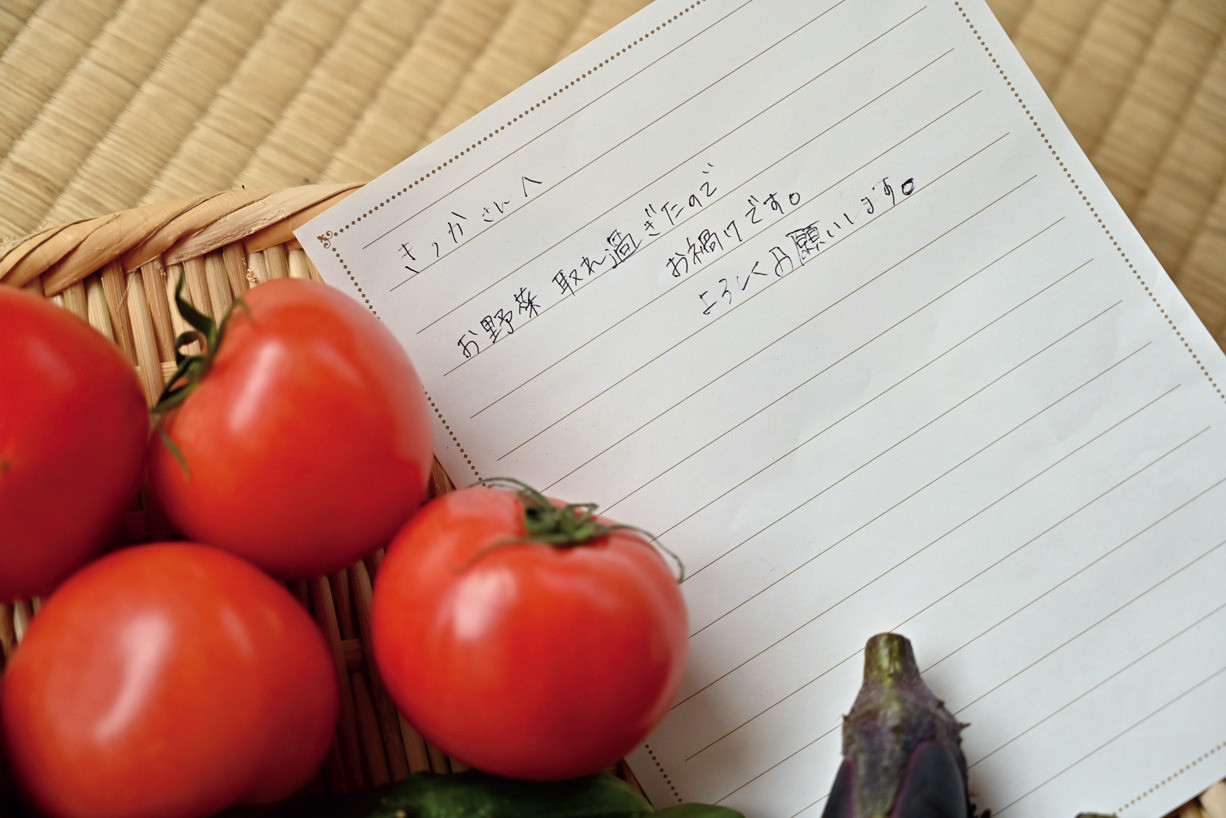 きっかさんへ
お野菜 取れ過ぎたので
お裾分けです。
よろしくお願いします。